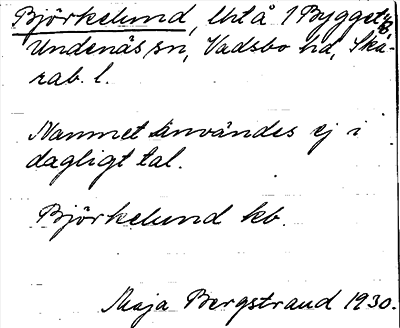 Björkelund, lht å 1 Bygget,
Undenäs sn, Vadsbo hd, Ska-
rab. l.
Namnet användes ej i
dagligt tal.
Björkelund kb.
Maja Bergstrand 1930.